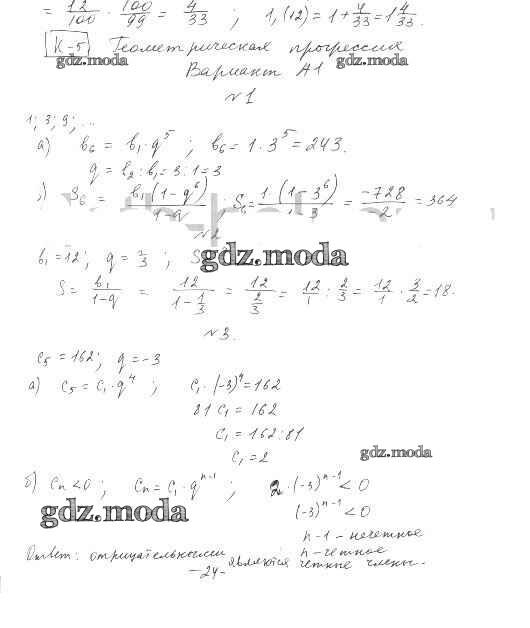 = 12/100 · 100/99 = 4/33 ; 1,(12) = 1 + 4/33 = 1 4/33.
К-5 Геометрическая прогрессия
gdz.moda
Вариант А1
№1
1; 3; 9; ...
а) b₆ = b₁·q⁵ ; b₆ = 1·3⁵ = 243.
q = b₂ : b₁ = 3 : 1 = 3
) S₆ = b₁(1-q⁶)/1-q ; S₆ = 1·(1-3⁶)/1-3 = -728/2 = 364
№2
b₁ = 12; q = 1/3 ; S
gdz.moda
S = b₁/1-q = 12/(1-1/3) = 12/(2/3) = 12/1 : 2/3 = 12/1 · 3/2 = 18.
№3.
c₅ = 162; q = -3
а) c₅ = c₁·q⁴ ; c₁·(-3)⁴ = 162
81 c₁ = 162
c₁ = 162:81
c₁ = 2
gdz.moda
б) cₙ < 0 ; cₙ = c₁·qⁿ⁻¹ ; 2·(-3)ⁿ⁻¹ < 0
(-3)ⁿ⁻¹ < 0
gdz.moda
n-1 - нечетное
n - четное
Ответ: отрицательными являются четные члены.
-24-